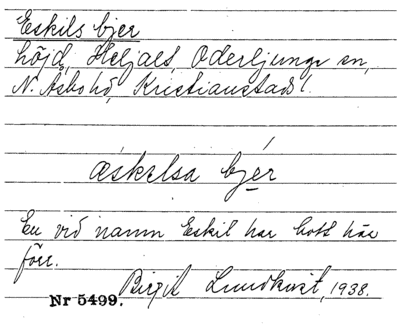 Eskils bjer
höjd, Heljalt, Oderljunga sn,
N. Åsbo hd, Kristianstads l.
äskelsa bjér
En vid namn Eskil har bott här
förr.
Birgit Lundkvist, 1938.
Nr 5499.